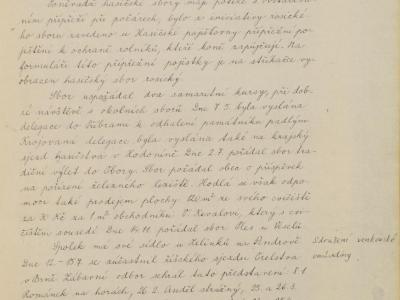 hasičské sbory mají potíže s
ním přípřeží při požárech, bylo z iniciativy rosické
ho sboru zavedeno u Hasičské pojišťovny připřežní po
jištění k ochraně rolníků, kteří koně zapůjčují. Na
formuláři této připřežní pojistky je na stuhačce vy
obrazen hasičský sbor rosický.
Sbor uspořádal dva samaritní kursy, při dob
ré návštěvě z okolních sborů. Dne 7.5. byla vyslána
delegace do Zubrami k odhalení památníku padlým.
Krojovaná delegace byla vyslána také na krajský
sjezd hasičstva v Hodoníně. Dne 2.7. pořádal sbor tra
diční výlet do Obory. Sbor požádal obec o příspěvek
na pořízení železného lešiště. Hodlá si však odpo
moci také prodejem plochy 120 m² ze svého cvičiště
za 10 Kč za 1 m² obchodníku V. Kovalovi, který s cvi
čištěm sousedí. Dne 14.11. pořádal sbor Ples u Veselů.
Spolek má své sídlo u Jelínků na Pendrově
Dne 12.-15.7. se zúčastnil říšského sjezdu
v Brně. Zábavní odbor sehrál tato představení: 1.1.
Románek na horách, 26.2. Anděl strážný, 25. a 26.3.
Sdružení venkovské
omladiny.